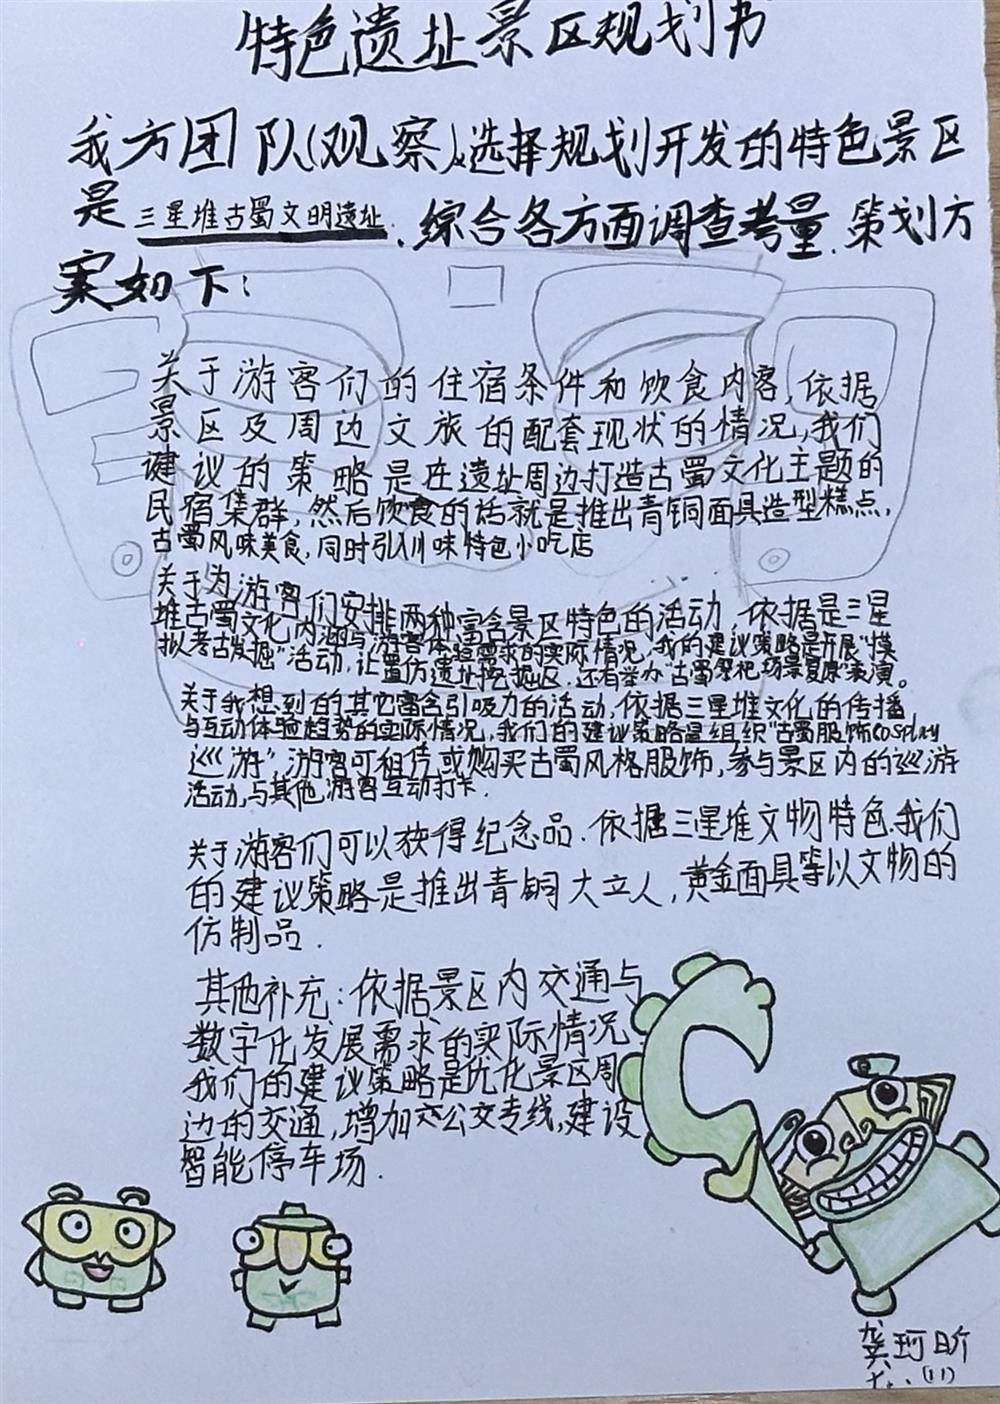 特色遗址景区规划书
我方团队(观察),选择规划开发的特色景区
是三星堆古蜀文明遗址.综合各方面调查考量.策划方
案如下:
关于游客们的住宿条件和饮食内客,依据
景区及周边文旅的配套现状的情况,我们
建议的策略是在遗址周边打造古蜀文化主题的
民宿集群,然后饮食的话就是推出青铜面具造型糕点,
古蜀风味美食,同时引入川味特色小吃店
关于为游客们安排两种富含景区特色的活动,依据是三星
堆古蜀文化内涵与游客体验需求的实际情况,我的建议策略是开展"模
拟考古发掘"活动,让置仿遗址挖掘区.还有举办"古蜀祭祀场景复原"表演。
关于我想到的其它富含引吸力的活动,依据三星堆文化的传播
与互动体验趋势的实际情况,我们的建议策略是组织"古蜀服饰cosplay
巡游"游客可租赁或购买古蜀风格服饰,参与景区内的巡游
活动,与其他游客互动打卡.
关于游客们可以获得纪念品.依据三星堆文物特色.我们
的建议策略是推出青铜大立人,黄金面具等以文物的
仿制品.
其他补充:依据景区内交通与
数字化发展需求的实际情况,
我们的建议策略是优化景区周
边的交通,增加公交专线,建设
智能停车场.
龚珂昕
六.(11)